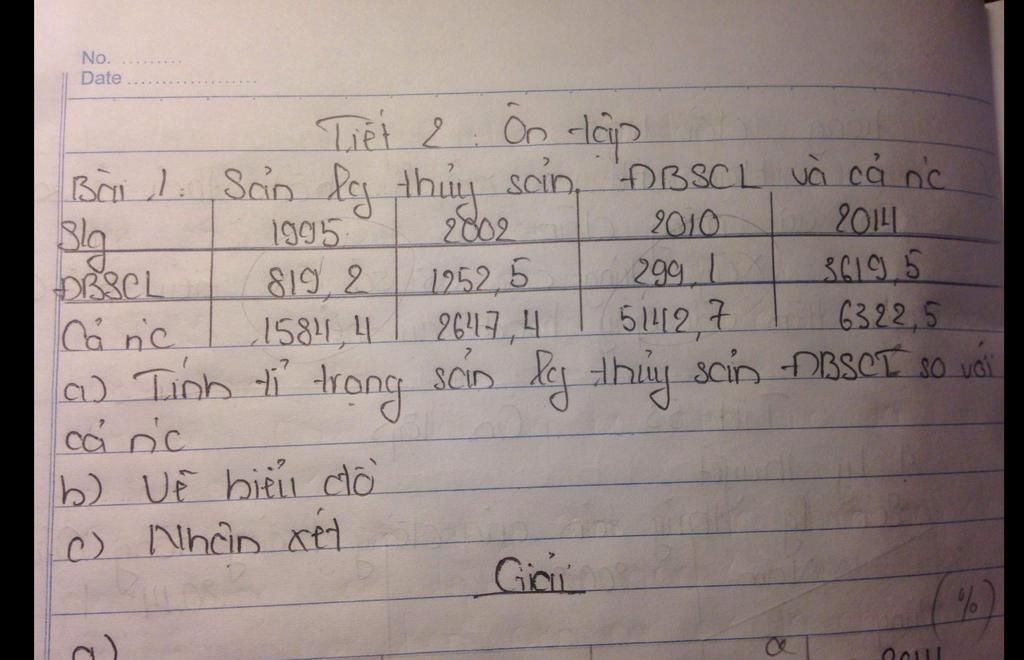 No. .........
Date ...................
Tiết 2 : Ôn tập
Bài 1: Sản lg thủy sản ĐBSCL và cả nc
Slg 1995 2002 2010 2014
ĐBSCL 819,2 1252,5 299,1 3619,5
Cả nc 1584,4 2647,4 5142,7 6322,5
a) Tính tỉ trọng sản lg thủy sản ĐBSCL so với
cả nc
b) Vẽ biểu đồ
c) Nhận xét
Giải
(%)
a) 2014